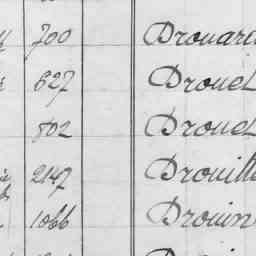 700 Drouard
627 Drouet
802 Drouet
2147 Drouill
1066 Drouin